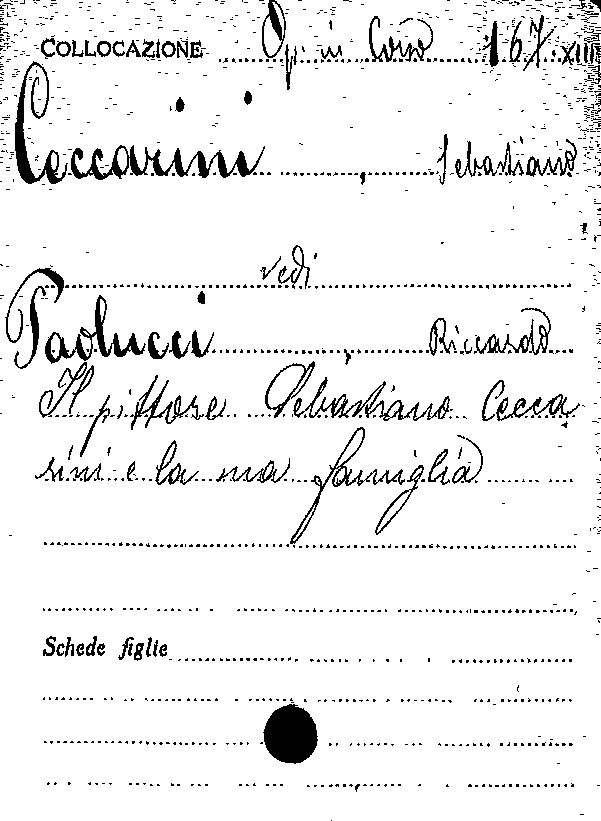 COLLOCAZIONE Op. in Corso 167.XIII
Ceccarini, Sebastiano
vedi
Paolucci, Riccardo
Il pittore Sebastiano Cecca
rini e la sua famiglia
Schede figlie